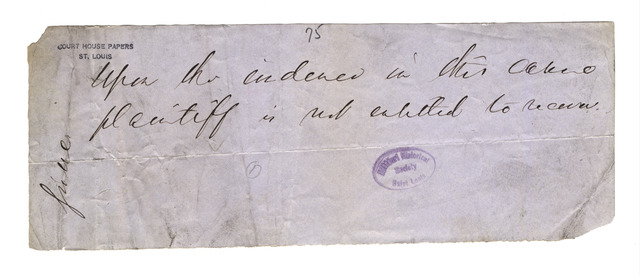 75
COURT HOUSE PAPERS
ST. LOUIS
Upon the evidence in this cause
plaintiff is not entitled to recover.
1
Missouri Historical
Society
Saint Louis